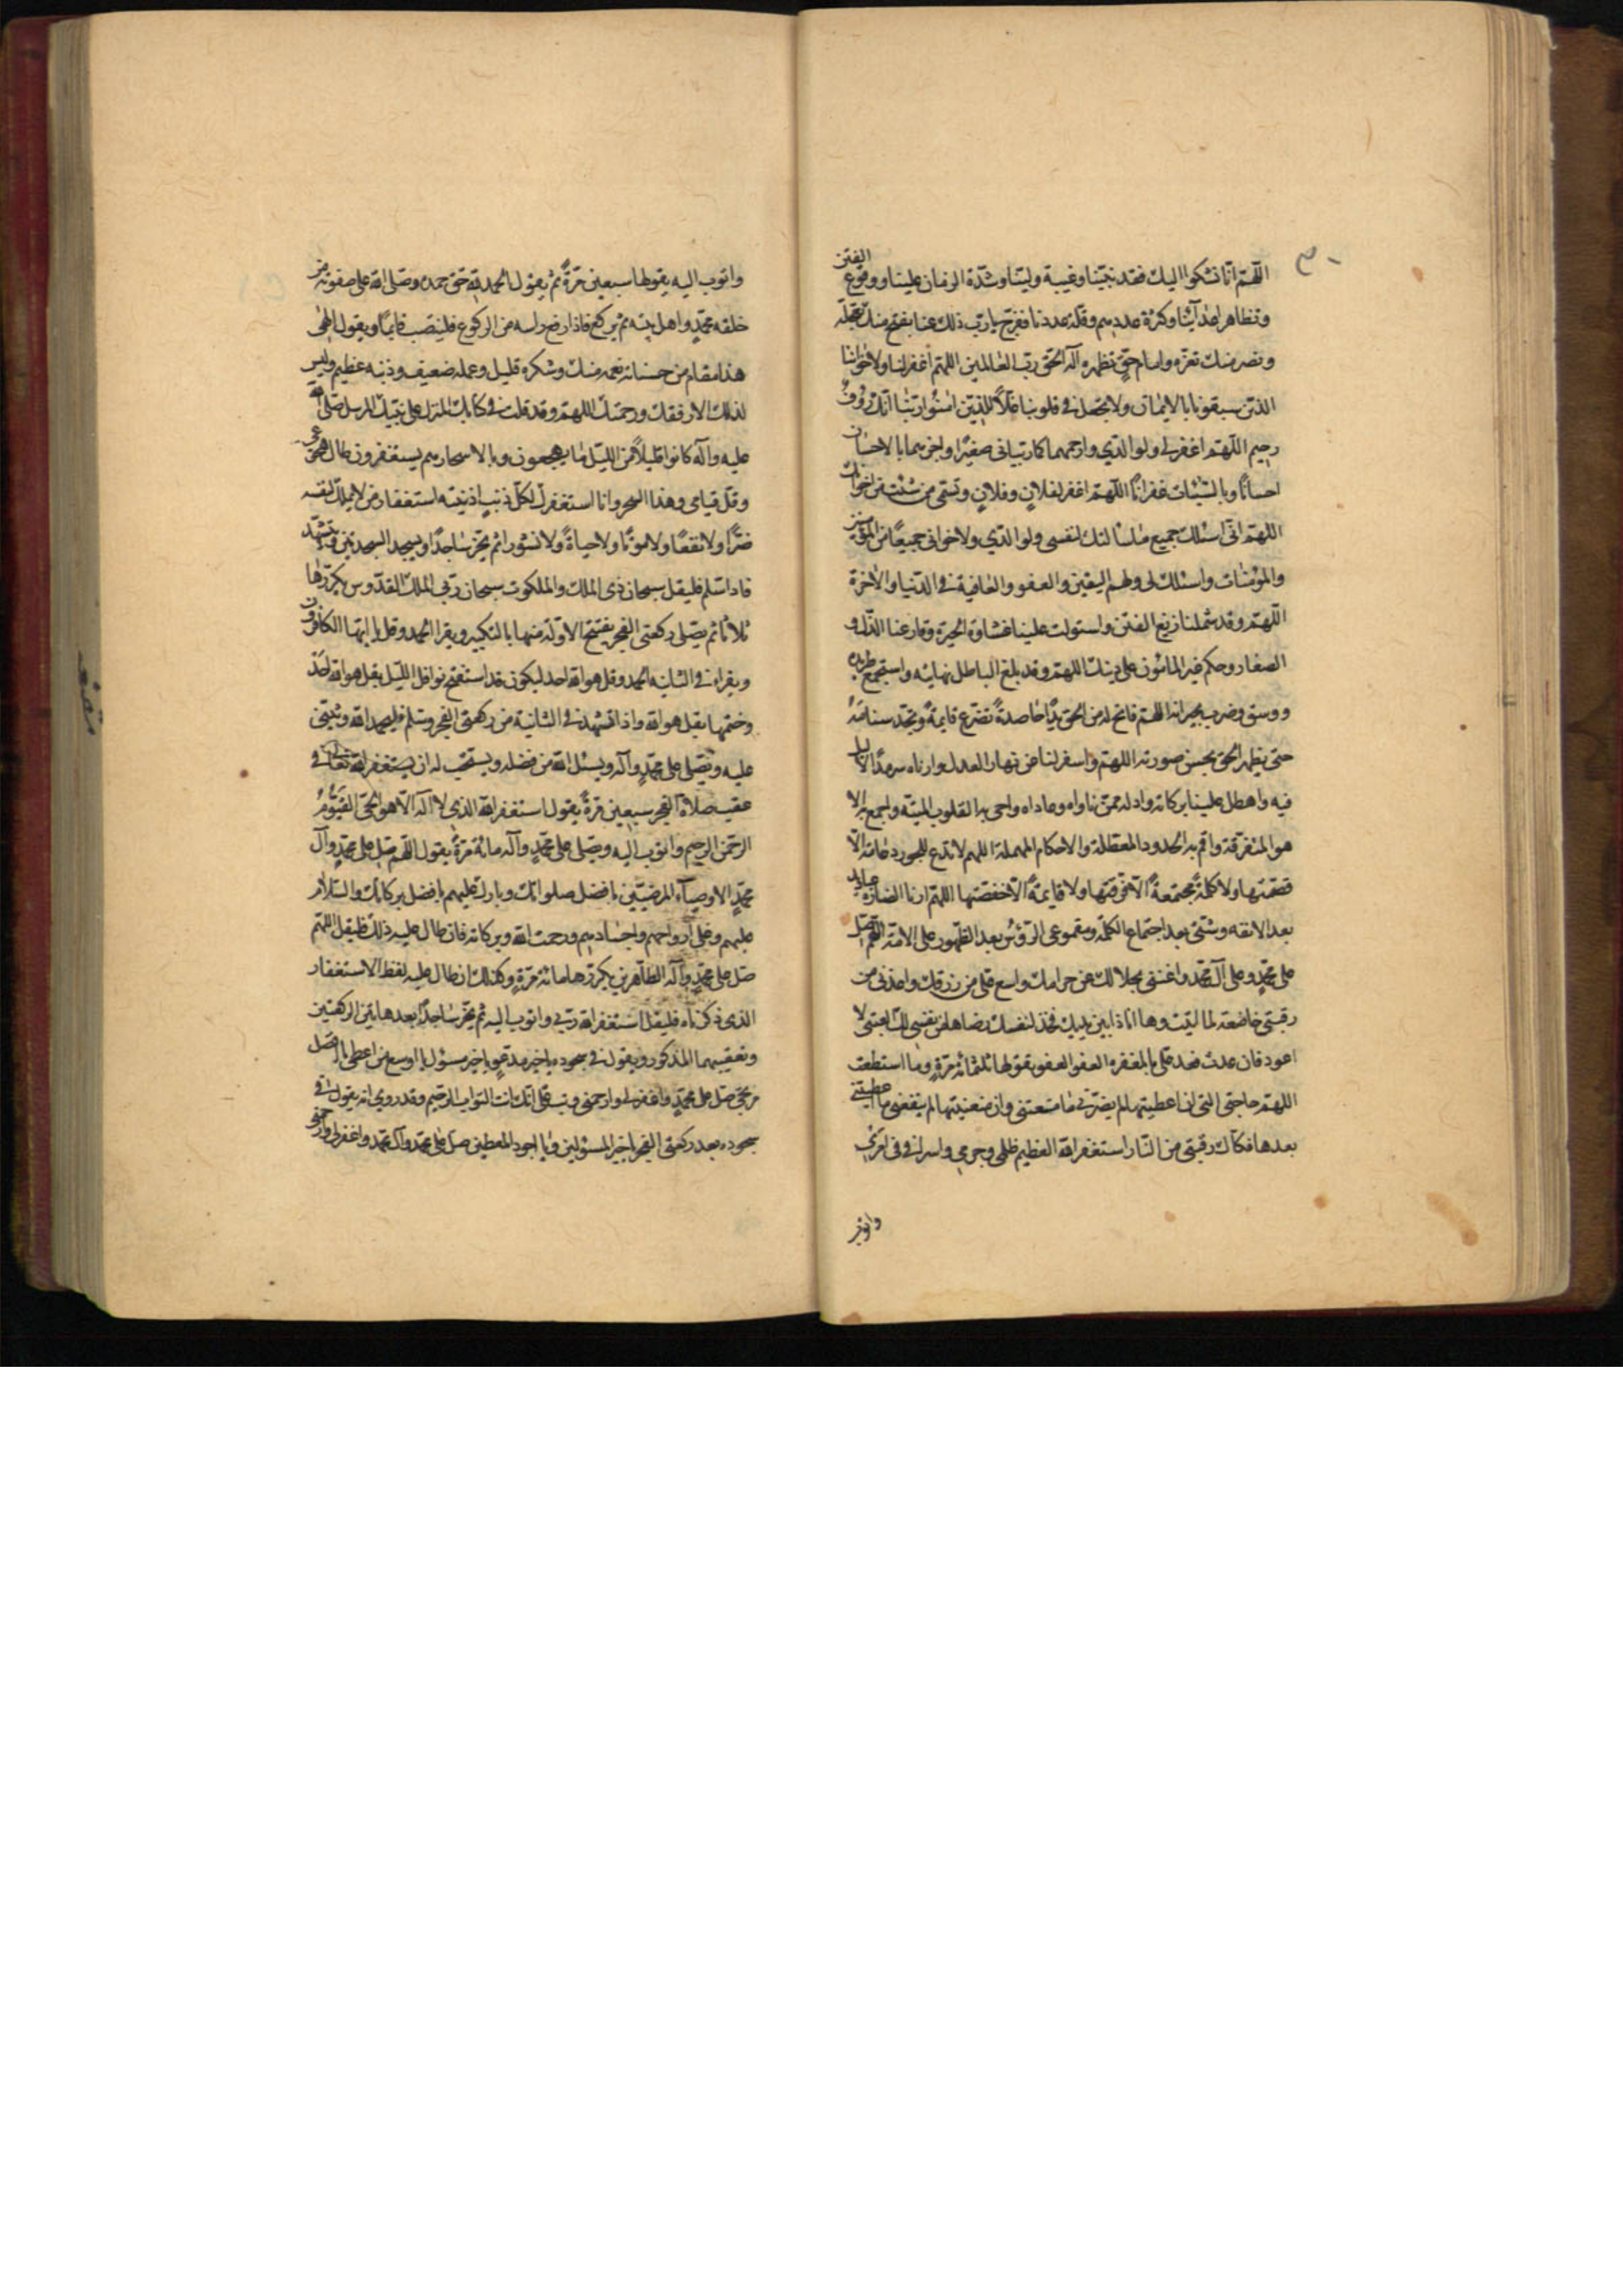 اللهم انا نشكوا اليك فقد نبينا وغيبة ولينا وشدة الزمان علينا ووقوع الفتن
وتظاهر اعدآئنا وكثرة عددهم وقلة عددنا ففرج يا رب ذلك عنا بفتح منك تعجله
ونصر منك تعزه وامام حق تظهره آله الحق رب العالمين اللهم اغفر لنا ولاخواننا
الذين سبقونا بالايمان ولا تجعل في قلوبنا غلا للذين امنوا ربنا انك رؤوف
رحيم اللهم اغفر لي ولوالدي وارحمهما كما ربياني صغيرا واجزهما بالاحسان
احسانا وبالسيئات غفرانا اللهم اغفر لفلان وفلان وتسمى من شئت من اخوانك
اللهم اني اسئلك جميع ما سالتك لنفسي ولوالدي ولاخواني جميعا من المؤمنين
والمؤمنات واسئلك لي ولهم اليقين والعفو والعافية في الدنيا والاخرة
اللهم وقد شملنا زيغ الفتن واستولت علينا غشاوة الحيرة وقارعنا الذل و
الصغار وحكم غير المامون على دينك اللهم وقد بلغ الباطل نهايته واستجمع طريده
ووسق وضرب بجرانه اللهم فاتح له من الحق يدا حاصدة تضرع قايمة وتجذ سنامه
حتى يظهر الحق بحسن صورته اللهم واسفر لنا عن نهار العدل وارناه سرمدا لا ليل
فيه واهطل علينا بركاته وادله ممن ناواه وعاداه واحى به القلوب الميته واجمع به الا
هوا المتفرقة واقم به الحدود المعطلة والاحكام المهملة اللهم لا تدع للجور دعامة الا
قصمتها ولا كلمة مجتمعة الا فرقتها ولا قايمة الا خفضتها اللهم ارنا انصاره عباديد
بعد الالفه وشتى بعد اجتماع الكلمة ومقموعى الرؤس بعد الظهور على الامة اللهم صل
على محمد وعلى آل محمد واغنني بحلالك عن حرامك واسع علي من رزقك واعذني من
رقبتي خاضعة لما اتيت وها انا ذا بين يديك فخذ لنفسك رضاها من نفسي لك العتبى لا
اعود فان عدت فعد علي بالمغفره العفو العفو يقولها ثلثمائة مرة وما استطعت
اللهم حاجتي التي ان اعطيتها لم يضرني ما منعتني وان منعتنيها لم ينفعني ما اعطيتني
بعدها فكاك رقبتي من النار استغفر الله العظيم ظلمي وجرمي واسرافي في امري
واتوب
واتوب اليه يقولها سبعين مرة ثم يقول الحمد لله حق حمده وصلى الله على صفوته من
خلقه محمد واهل بيته ثم يركع فاذا رفع راسه من الركوع فلينتصب قايما ويقول الهى
هذا مقام من حسناته نعمه منك وشكره قليل وعمله ضعيف وذنبه عظيم وليس
لذلك الا رفقك ورحمتك اللهم وقد قلت في كتابك المنزل على نبيك المرسل صلى الله
عليه وآله كانوا قليلا من الليل ما يهجعون وبالاسحار هم يستغفرون طال هجوعى
وقل قيامي وهذا السحر وانا استغفرك لكل ذنب اذنبته استغفار من لا يملك لنفسه
ضرا ولا نفعا ولا موتا ولا حياة ولا نشورا ثم يخر ساجدا ويسجد السجدتين ويتشهد
فاذا سلم فليقل سبحان ذي الملك والملكوت سبحان ربي الملك القدوس يكررها
ثلاثا ثم يصلى ركعتي الفجر يفتتح الاولة منها بالتكبير ويقرا الحمد وقل يا ايها الكافرون
ويقراء في الثانيه الحمد وقل هو الله احد ليكون قد استفتح نوافل الليل بقل هو الله احد
وختمها بقل هو الله واذا تشهد في الثانية من ركعتي الفجر وسلم فليحمد الله ويثنى
عليه ويصلى على محمد وآله ويسئل الله من فضله ويستحب له ان يستغفر الله تعالى في
عقيب صلاة الفجر سبعين مرة يقول استغفر الله الذي لا آله الا هو الحي القيوم
الرحمن الرحيم واتوب اليه ويصلى على محمد وآله مائة مرة يقول اللهم صل على محمد وآل
محمد الاوصيآء المرضيين بافضل صلواتك وبارك عليهم بافضل بركاتك والسلام
عليهم وعلى ارواحهم واجسادهم ورحمت الله وبركاته فان طال عليه ذلك فليقل اللهم
صل على محمد وآله الطاهرين يكررها مائة مرة وكذلك ان طال عليه لفظ الاستغفار
الذي ذكرناه فليقل استغفر الله ربي واتوب اليه ثم يخر ساجدا بعدها بين الركعتين
وتعقيبهما المذكور ويقول في سجوده يا خير مدعو يا خير مسؤل يا اوسع من اعطى يا افضل
مرتجى صل على محمد واغفر لي وارحمني وتب علي انك انت التواب الرحيم وقد روي انه يقول في
سجوده بعد ركعتي الفجر يا خير المسئولين ويا اجود المعطين صل على محمد وآل محمد واغفر لي وارحمني